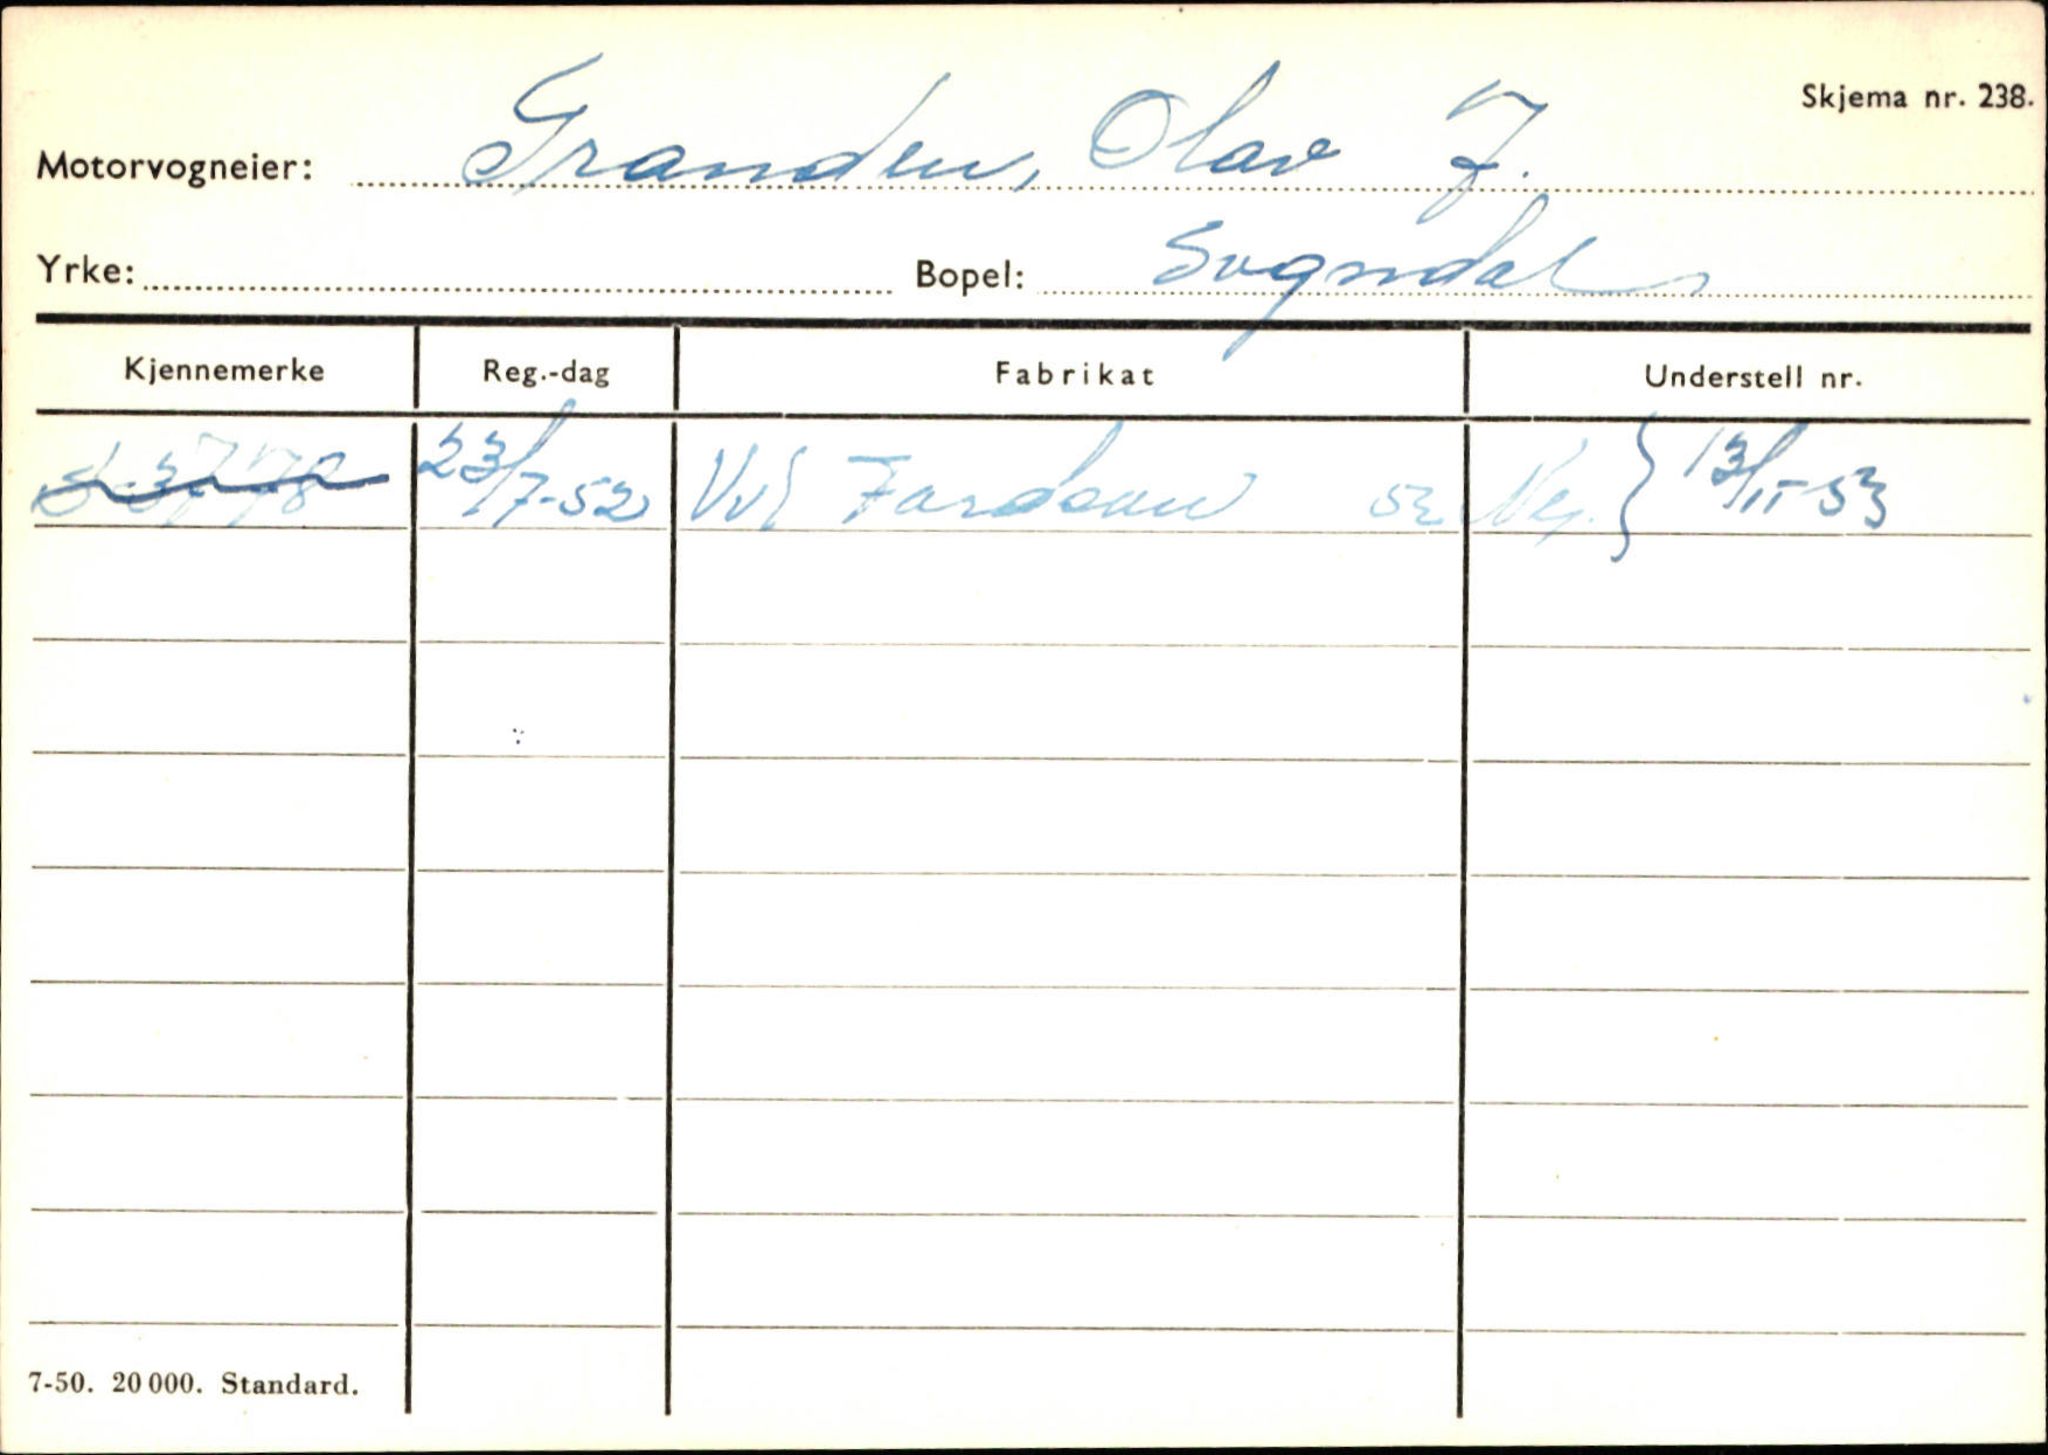 Skjema nr. 238.
Motorvogneier: Granden, Olav J.
Yrke: Bopel: Sogndal
Kjennemerke Reg.-dag Fabrikat Understell nr.
S-3778 23/7-52 Vvf Fordson 52 13/11-53
7-50. 20 000. Standard.